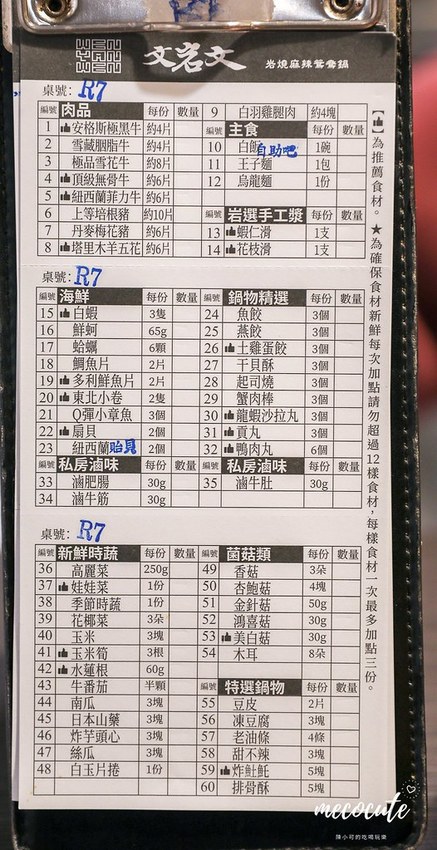 文岩文 岩燒麻辣鴛鴦鍋
桌號: R7
編號 肉品 每份 數量
1 安格斯極黑牛 約4片
2 雪藏胭脂牛 約4片
3 極品雪花牛 約8片
4 頂級無骨牛 約6片
5 紐西蘭菲力牛 約6片
6 上等培根豬 約10片
7 丹麥梅花豬 約6片
8 塔里木羊五花 約6片
9 白羽雞腿肉 約4塊
編號 主食 每份 數量
10 白飯 自助吧 1碗
11 王子麵 1包
12 烏龍麵 1份
編號 岩選手工漿 每份 數量
13 蝦仁滑 1支
14 花枝滑 1支
桌號: R7
編號 海鮮 每份 數量
15 白蝦 3隻
16 鮮蚵 65g
17 蛤蠣 6顆
18 鯛魚片 2片
19 多利鮮魚片 2片
20 東北小卷 2隻
21 Q彈小章魚 3個
22 扇貝 2個
23 紐西蘭貽貝 2個
編號 私房滷味 每份 數量
33 滷肥腸 30g
34 滷牛筋 30g
編號 鍋物精選 每份 數量
24 魚餃 3個
25 燕餃 3個
26 土雞蛋餃 3個
27 干貝酥 3個
28 起司燒 3個
29 蟹肉棒 3個
30 龍蝦沙拉丸 3個
31 貢丸 3個
32 鴨肉丸 6個
編號 私房滷味 每份 數量
35 滷牛肚 30g
桌號: R7
編號 新鮮時蔬 每份 數量
36 高麗菜 250g
37 娃娃菜 1份
38 季節時蔬 1份
39 花椰菜 3朵
40 玉米 3塊
41 玉米筍 3根
42 水蓮根 60g
43 牛番茄 半顆
44 南瓜 3塊
45 日本山藥 3塊
46 炸芋頭心 3塊
47 絲瓜 3塊
48 白玉片捲 1份
編號 菌菇類 每份 數量
49 香菇 3朵
50 杏鮑菇 4塊
51 金針菇 50g
52 鴻喜菇 30g
53 美白菇 30g
54 木耳 8朵
編號 特選鍋物 每份 數量
55 豆皮 2片
56 凍豆腐 3塊
57 老油條 4條
58 甜不辣 3塊
59 炸魠魠 5塊
60 排骨酥 5塊
【】為推薦食材。★為確保食材新鮮每次加點請勿超過12樣食材,每樣食材一次最多加點三份。
mecocute
陳小可的吃喝玩樂